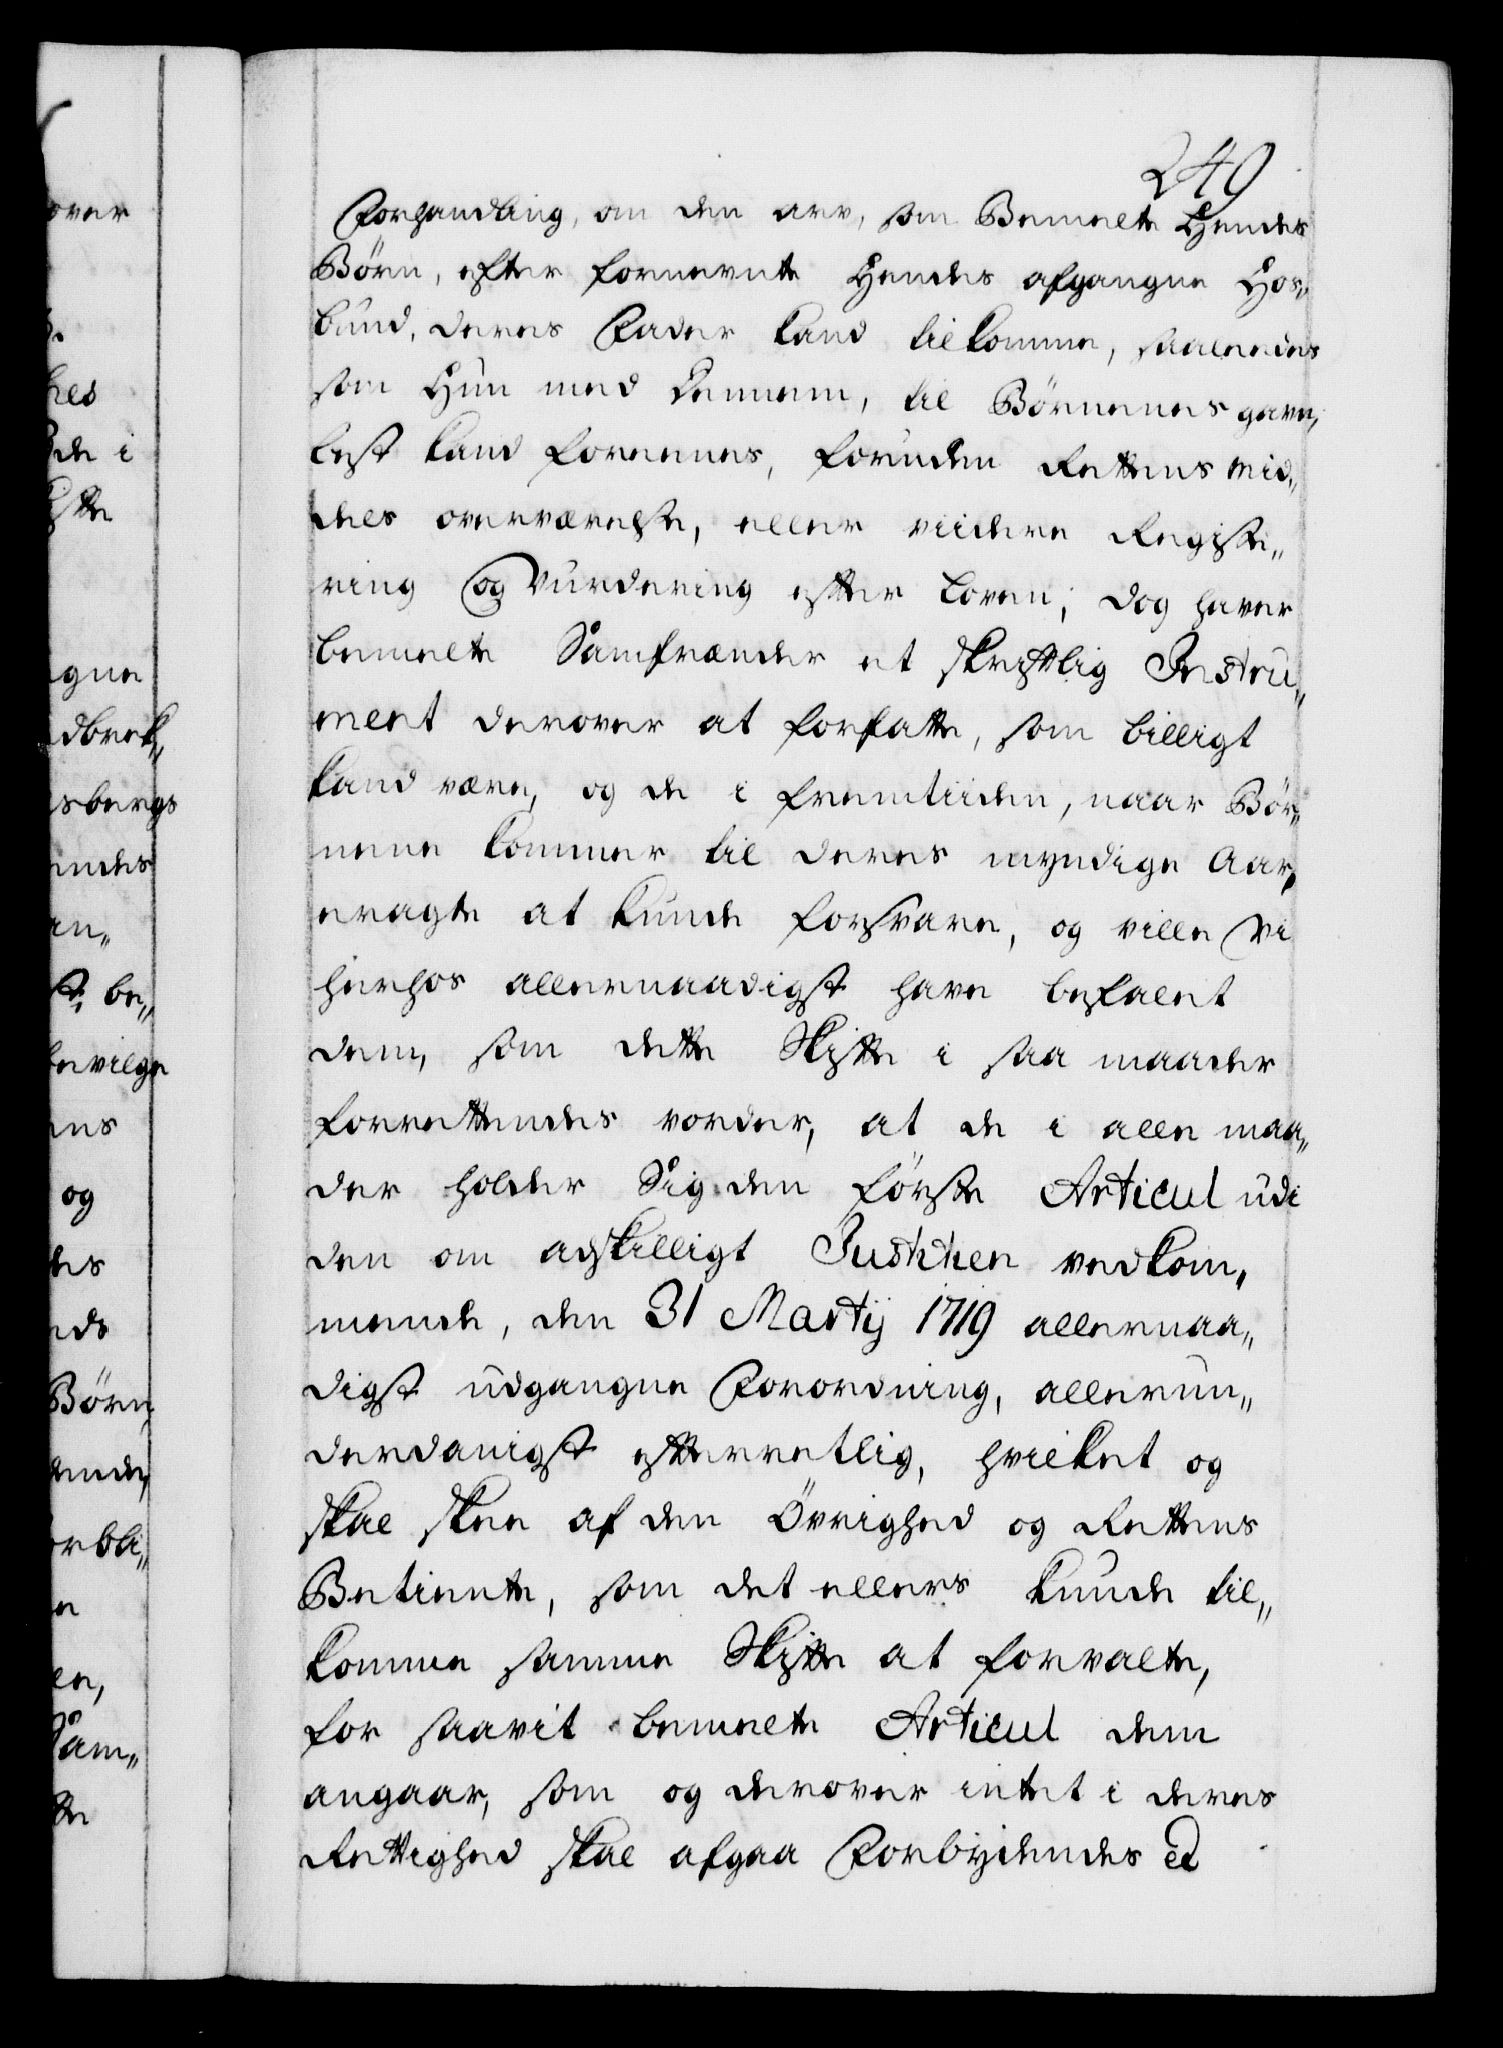 249
Forhandling, om den arv, som Bemelte Hendes
Börn, efter fornevnte Hendes afgangne Hos„
bund, deres Fader kand tilkomme, saaledes
som Hun med dennem, til Börnenes gavn,
best kand foreenes, foruden Rettens Mid„
dels overværelse, eller viidere Registe„
ring og Vurdering efter Loven; dog haver
bemelte Samfrænder et skriftlig Instru„
ment derover at forfatte, som billigt
kand være, og de i fremtiiden, naar Bör„
nene kommer til deres myndige Aar,
eragte at kunde forsvare, og ville Vi
hierhos allernaadigst have befalet
dem, som dette Skifte i saa maader
forrettendes vorder, at de i alle maa„
der holder Sig den förste Articul udi
den om adskilligt Justitien vedkom„
mende, den 31 Martij 1719 allernaa„
digst udgangne Forordning, allerun„
derdanigst efterretlig, hvilket og
skal skee af den Övrighed og Rettens
Betiente, som det ellers kunde til„
komme samme Skifte at forvalte,
for saavit bemelte Articul dem
angaar, som og derover intet i deres
Rettighed skal afgaa Forbydendes et
over
hes
de i
gne
dbrek„
sbergs
endes
an„
st, be„
bevilge
ens
og
des
nds
Börn,
rbli„
en,
Sam„